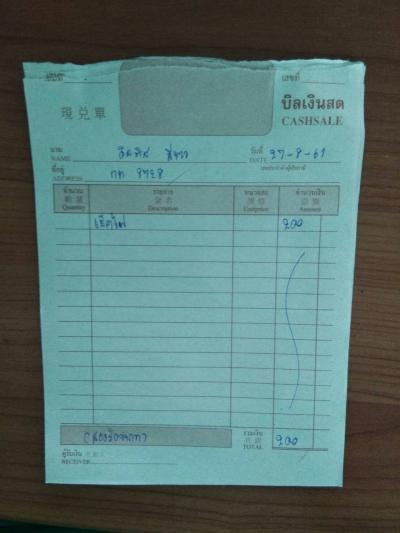 เล่มที่ เลขที่
現兌單 บิลเงินสด
CASHSALE
นาม วันที่ 27-8-61
NAME DATE
ที่อยู่ กท 8728 เลขประจำตัวผู้เสียภาษี
ADDRESS
จำนวน รายการ หน่วยละ จำนวนเงิน
數量 貨名 價格 銀額
Quantity Description Unitprice Amount
เช็คไฟ 200
(สองร้อยบาท) รวมเงิน 200
TOTAL
ผู้รับเงิน
RECEIVER